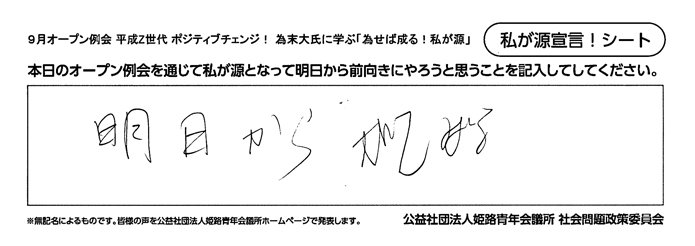 9月オープン例会 平成Z世代 ポジティブチェンジ! 為末大氏に学ぶ「為せば成る!私が源」
私が源宣言!シート
本日のオープン例会を通じて私が源となって明日から前向きにやろうと思うことを記入してしてください。
明日から
※無記名によるものです。皆様の声を公益社団法人姫路青年会議所ホームページで発表します。
公益社団法人姫路青年会議所 社会問題政策委員会